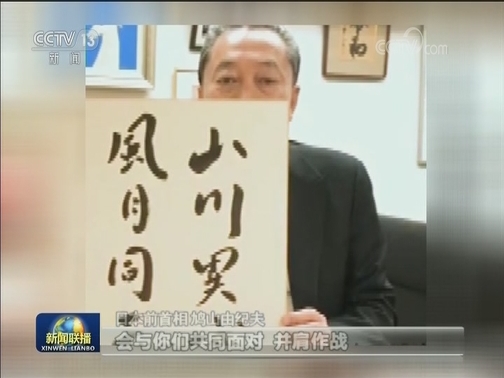 CCTV 13
新闻
CCTV.com
山川異
風月同
日本前首相 鸠山由纪夫
会与你们共同面对 并肩作战
新闻联播
XINWEN LIANBO